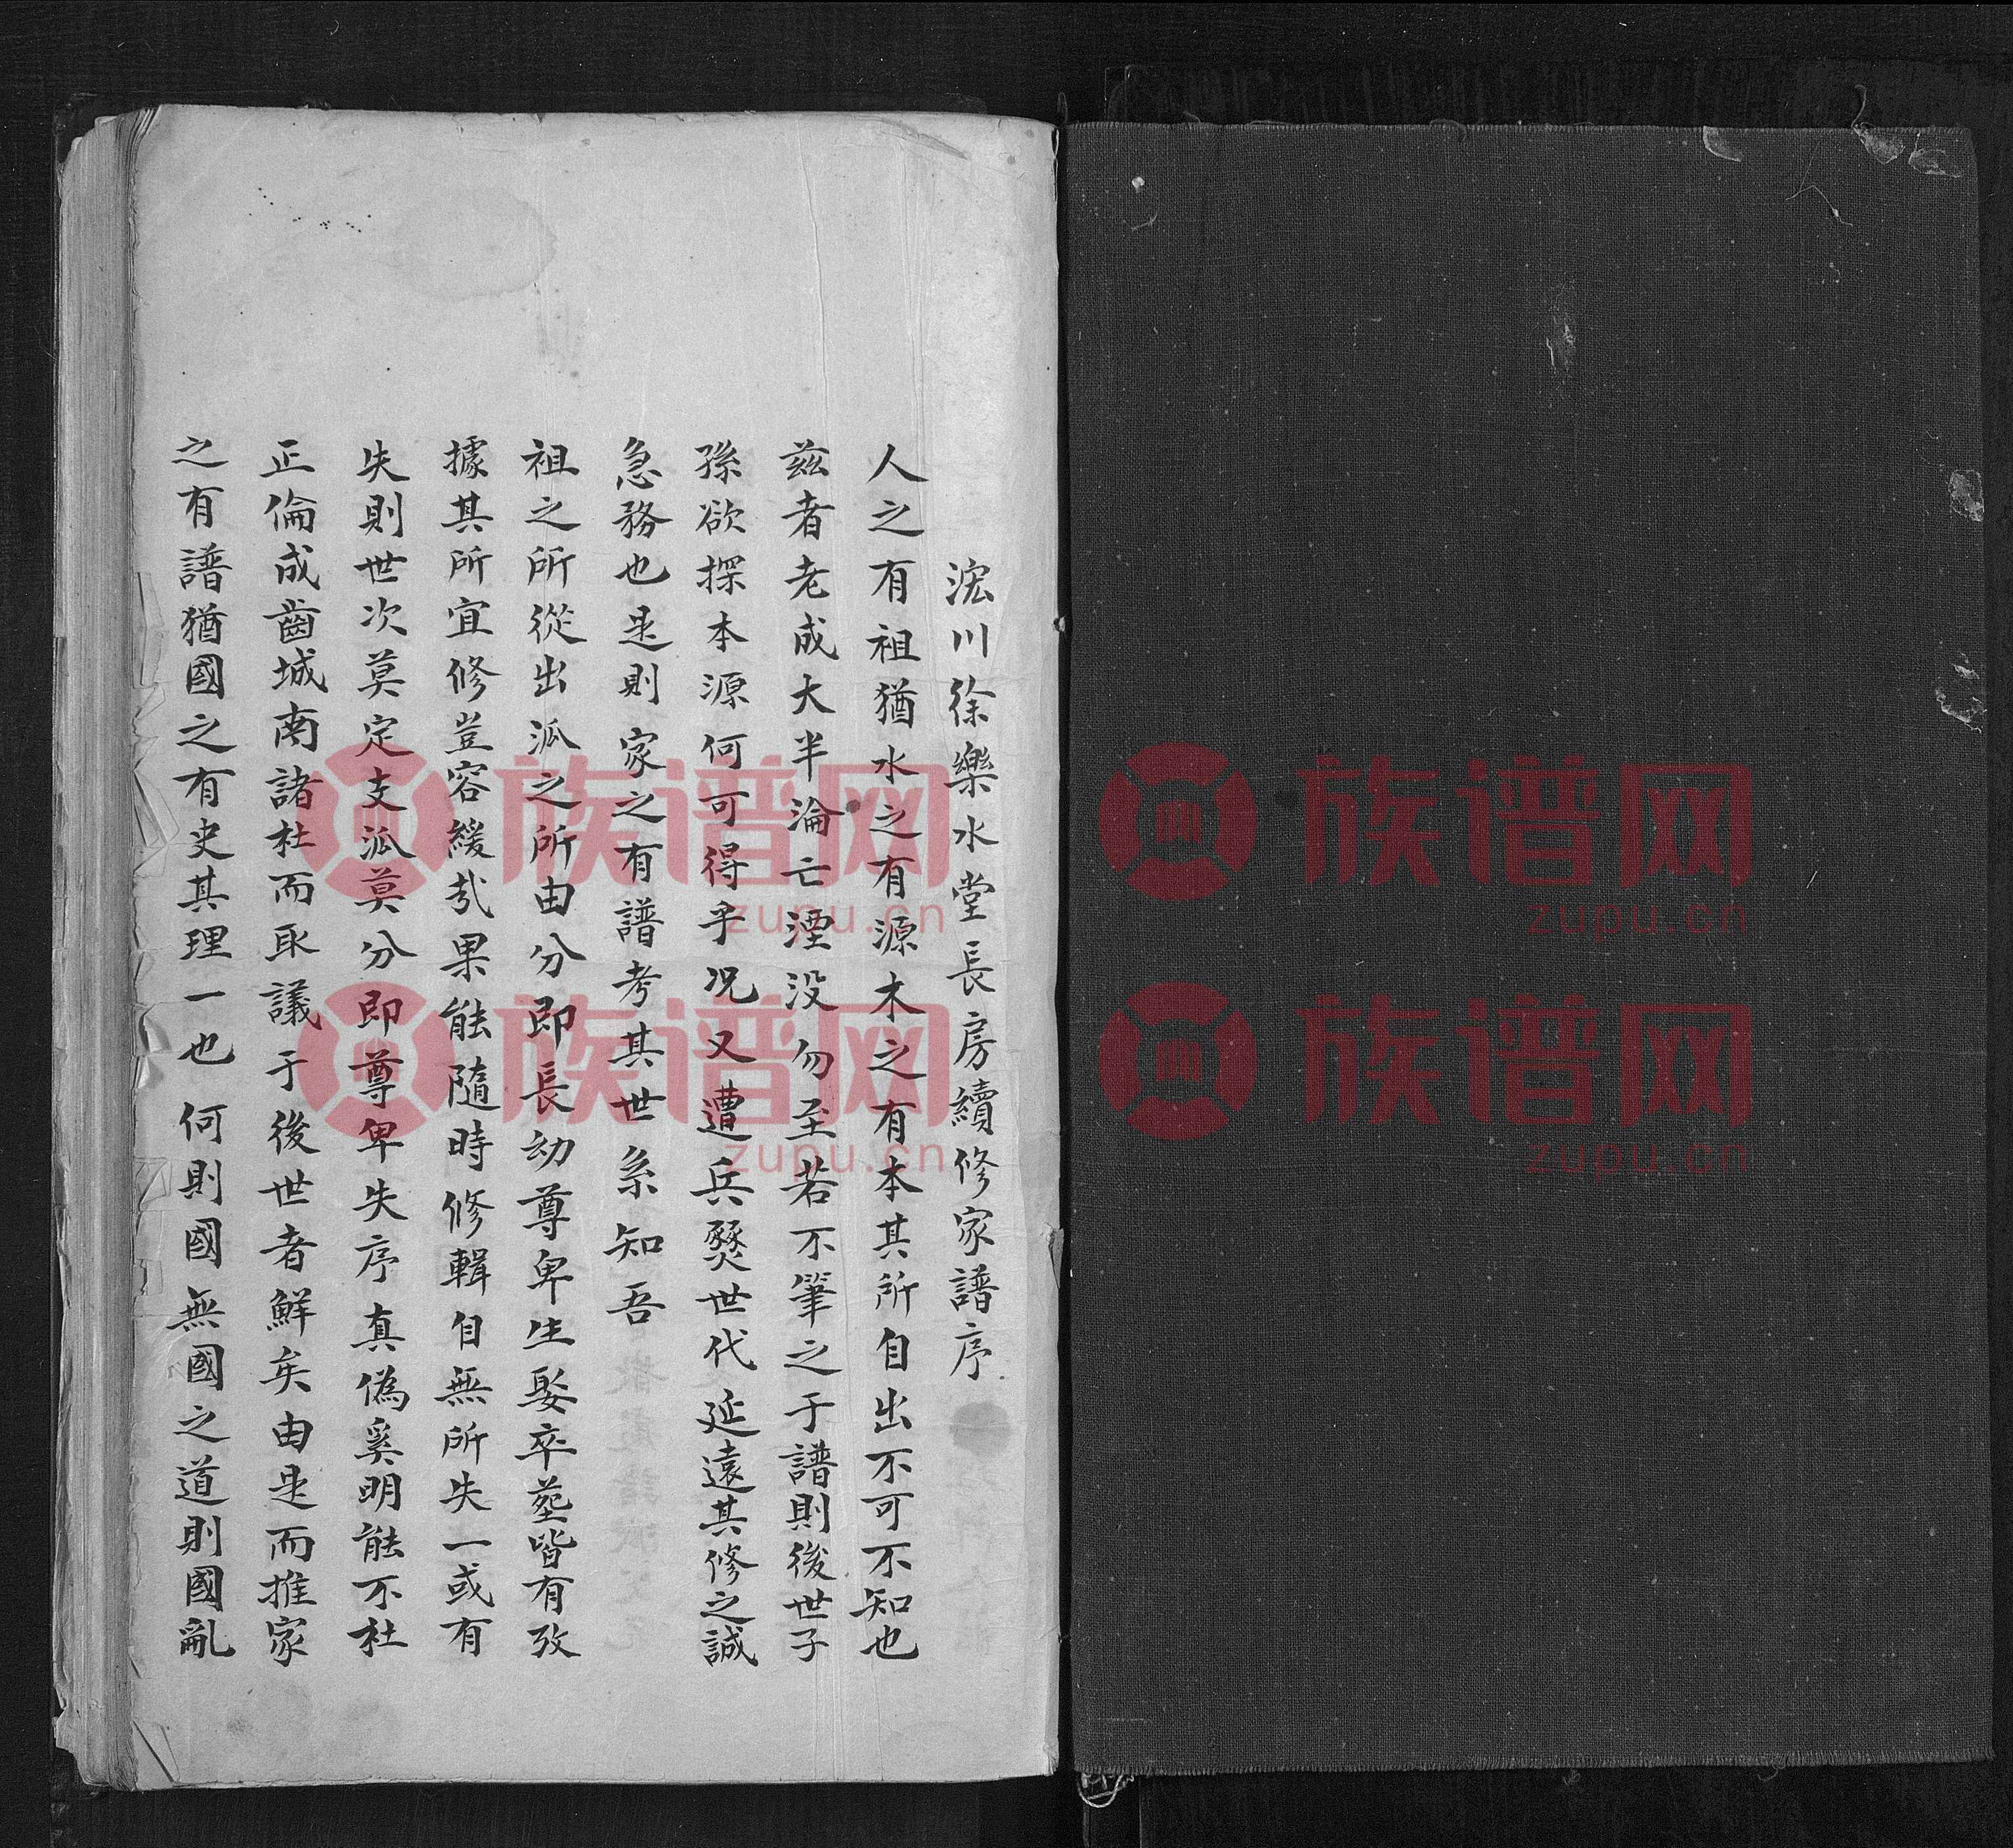 浤川徐樂水堂長房續修家譜序
人之有祖猶水之有源木之有本其所自出不可不知也
兹者老成大半淪亡湮没勿至若不筆之于譜則後世子
孫欲探本源何可得乎况又遭兵燹世代延遠其修之誠
急務也是則家之有譜考其世系知吾
祖之所從出派之所由分即長幼尊卑生娶卒塟皆有攷
據其所宜修豈容緩哉果能隨時修輯自無所失一或有
失則世次莫定支派莫分即尊卑失序真偽奚明能不杜
正倫成齒城南諸杜而取議于後世者鮮矣由是而推家
之有譜猶國之有史其理一也何則國無國之道則國亂
族谱网
zupu.cn
族谱网
zupu.cn
族谱网
zupu.cn
族谱网
zupu.cn